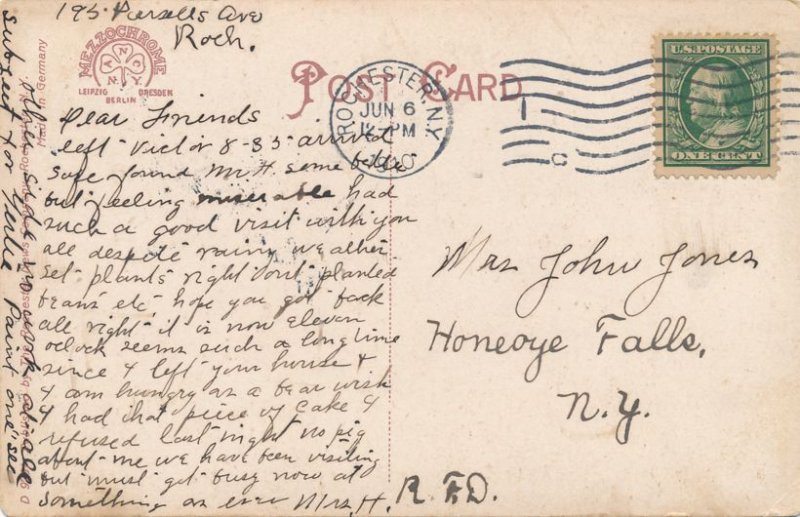 195 Pursells Ave
Roch.
MEZZOCHROME
ANCY
LEIPZIG DRESDEN
BERLIN
Made in Germany
POST CARD
ROCHESTER, N.Y.
JUN 6
12-PM
U.S. POSTAGE
ONE CENT
Dear Friends
left Victor 8-35 arrived
safe found Mr H. some better
but feeling miserable had
such a good visit with you
all despite rainy weather
set plants right out planted
beans etc, hope you got back
all right it is now eleven
oclock seems such a long time
since I left your house &
I am hungry as a bear wish
I had that piece of Cake I
refused last night no pig
about me we have been visiting
but must get busy now at
something as ever Mrs. H.
other side no work at all
subject for Paint one "see
Mrs John Jones
Honeoye Falls,
N.Y.
R.F.D.